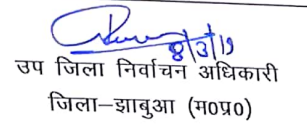 8/3/19
उप जिला निर्वाचन अधिकारी
जिला–झाबुआ (म०प्र०)